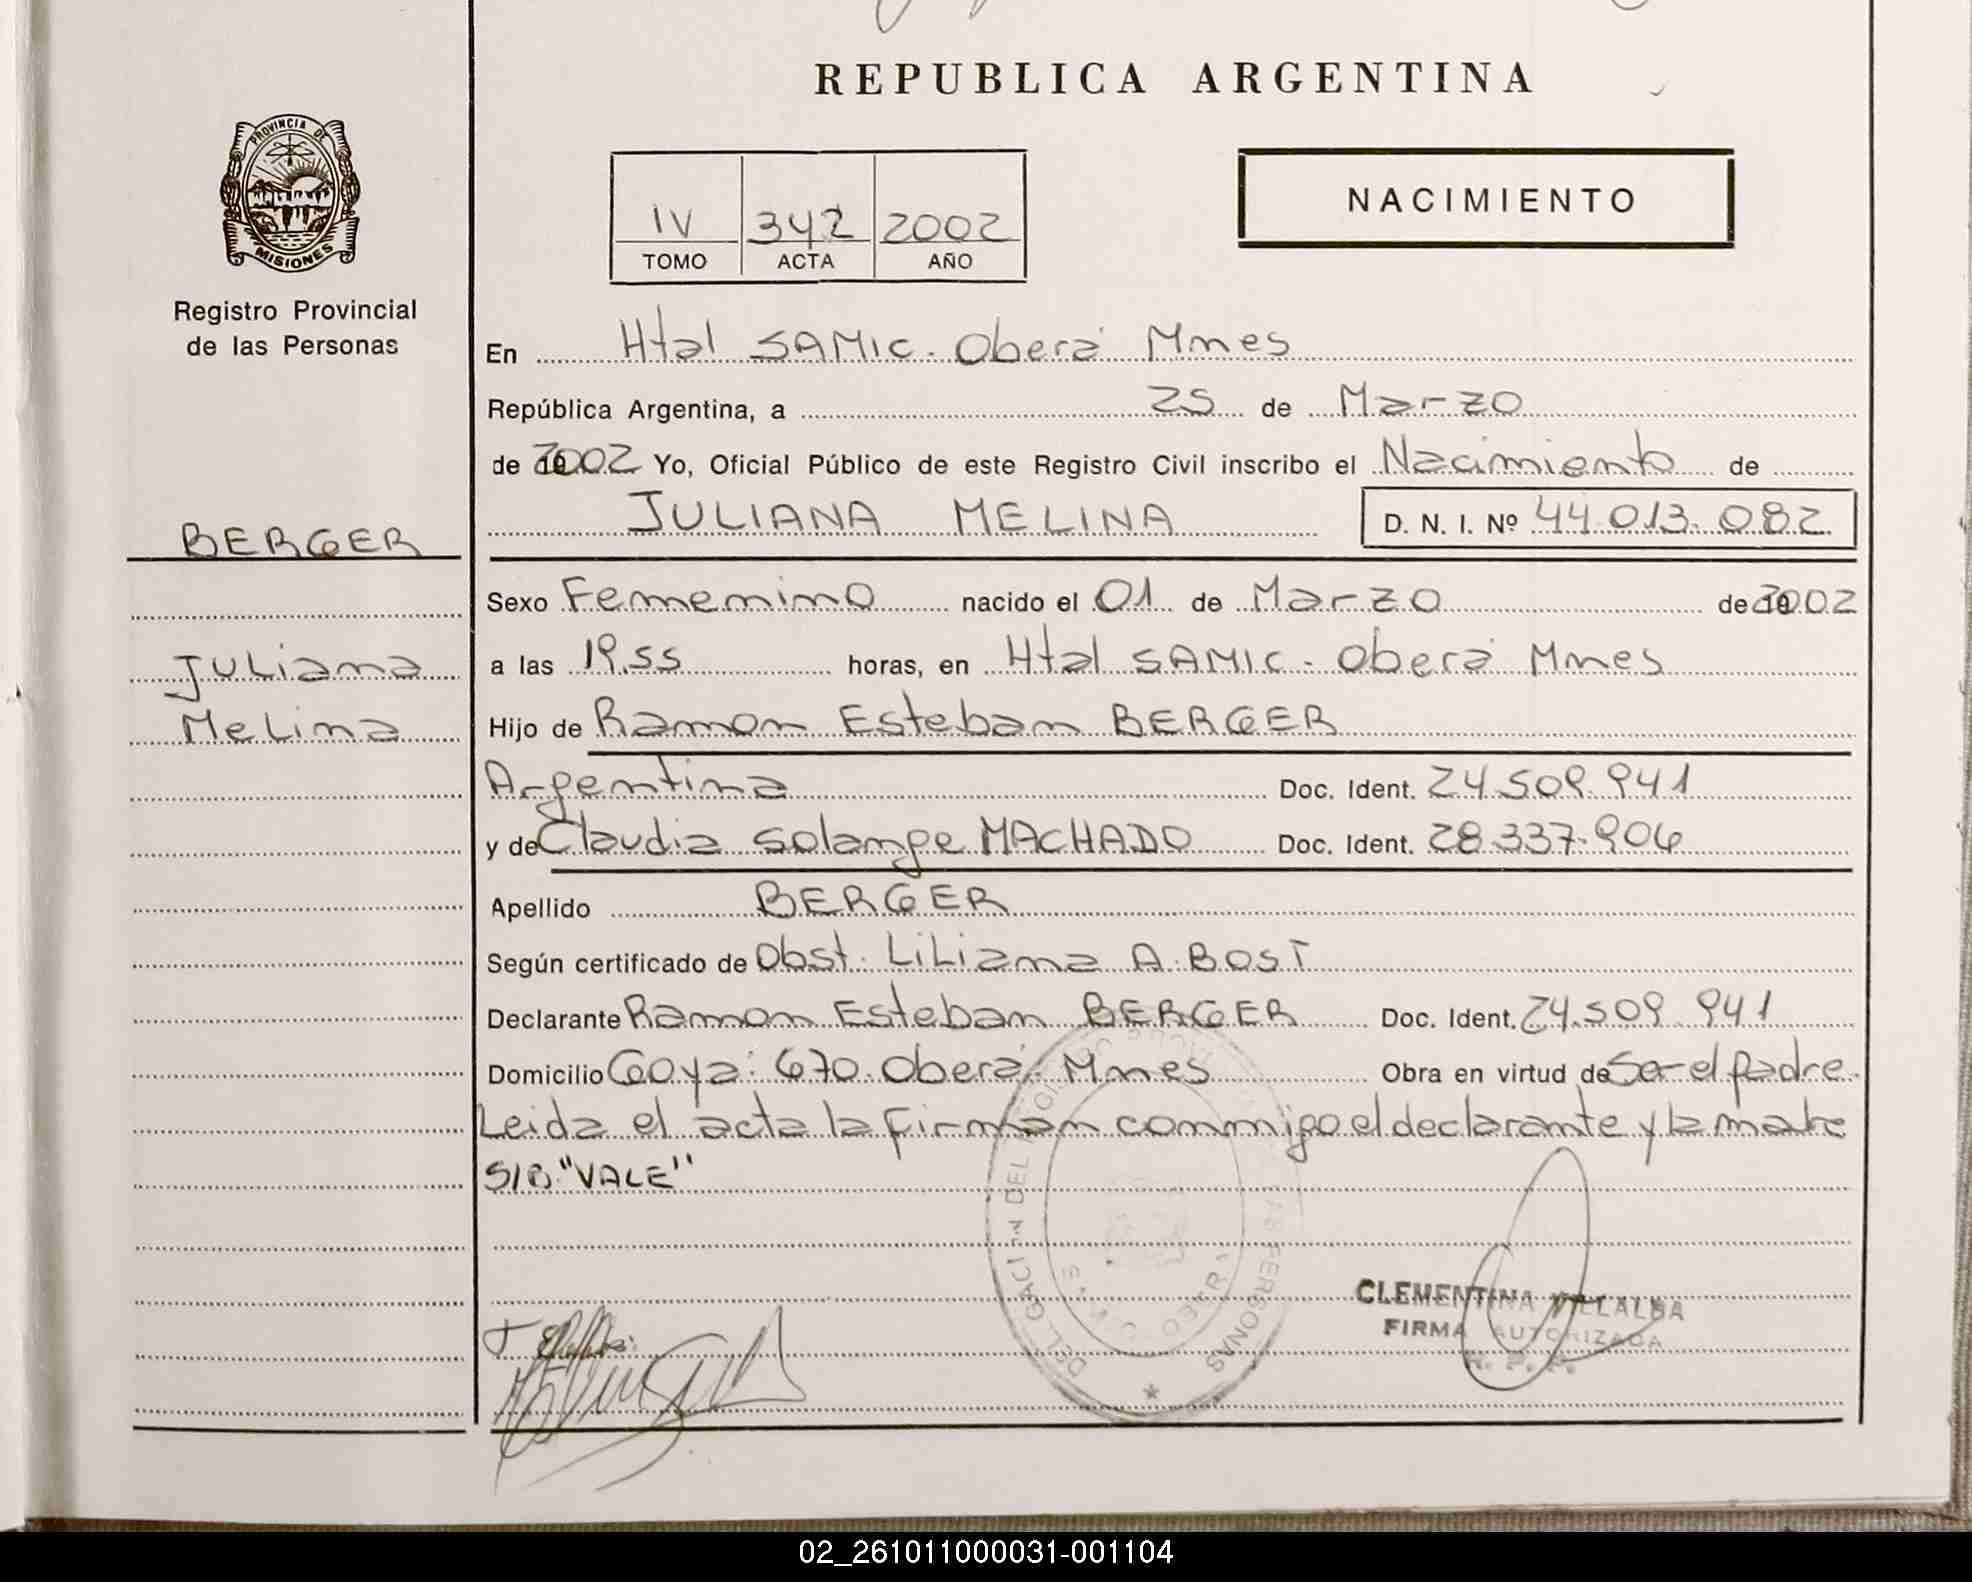 REPUBLICA ARGENTINA
PROVINCIA DE
MISIONES
Registro Provincial
de las Personas
IV 342 2002
TOMO ACTA AÑO
NACIMIENTO
En Htal SAMIC. Oberá Mnes
República Argentina, a 25 de Marzo
de 2002 Yo, Oficial Público de este Registro Civil inscribo el Nacimiento de
JULIANA MELINA D. N. I. Nº 44.013.082
BERGER
Juliana
Melina
Sexo Femenino nacido el 01 de Marzo de 2002
a las 19.55 horas, en Htal SAMIC. Oberá Mnes
Hijo de Ramon Esteban BERGER
Argentina Doc. Ident. 24.509.941
y de Claudia Solange MACHADO Doc. Ident. 28.337.906
Apellido BERGER
Según certificado de Obst. Liliana A. BOST
Declarante Ramon Esteban BERGER Doc. Ident. 24.509.941
Domicilio Goya: 670. Oberá. Mnes Obra en virtud de Ser el padre.
Leida el acta la firman conmigo el declarante y la madre
S/B "VALE"
CLEMENTINA VILLALBA
FIRMA AUTORIZADA
R. P. P.
PERSONAS
02_261011000031-001104